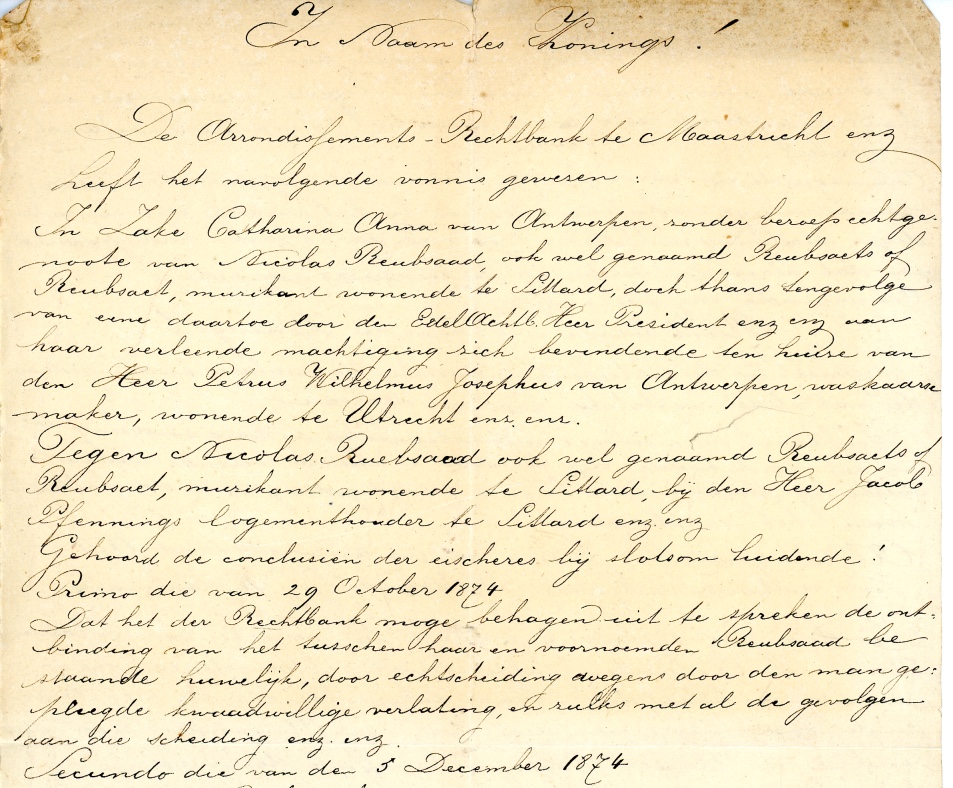 In Naam des Konings!
De Arrondissements-Rechtbank te Maastricht enz
heeft het navolgende vonnis gewezen:
In Zake Catharina Anna van Antwerpen, zonder beroep echtge-
noote van Nicolas Reubsaad, ook wel genaamd Reubsaets of
Reubsaet, muzikant wonende te Sittard, doch thans tengevolge
van eene daartoe door den EdelAchtb. Heer President enz enz aan
haar verleende machtiging zich bevindende ten huize van
den Heer Petrus Wilhelmus Josephus van Antwerpen, waskaarse
maker, wonende te Utrecht enz. enz.
Tegen Nicolas Ruebsaad ook wel genaamd Reubsaets of
Reubsaet, muzikant wonende te Sittard, bij den Heer Jacob
Pfennings logementhouder te Sittard enz. enz
Gehoord de conclusiën der eischeres bij slotsom luidende!
Primo die van 29 October 1874
Dat het der Rechtbank moge behagen uit te spreken de ont-
binding van het tusschen haar en voornoemden Reubsaad be
staande huwelijk, door echtscheiding wegens door den man ge:
pleegde kwaadwillige verlating, en zulks met al de gevolgen
aan die scheiding enz. enz.
Secundo die van den 5 December 1874